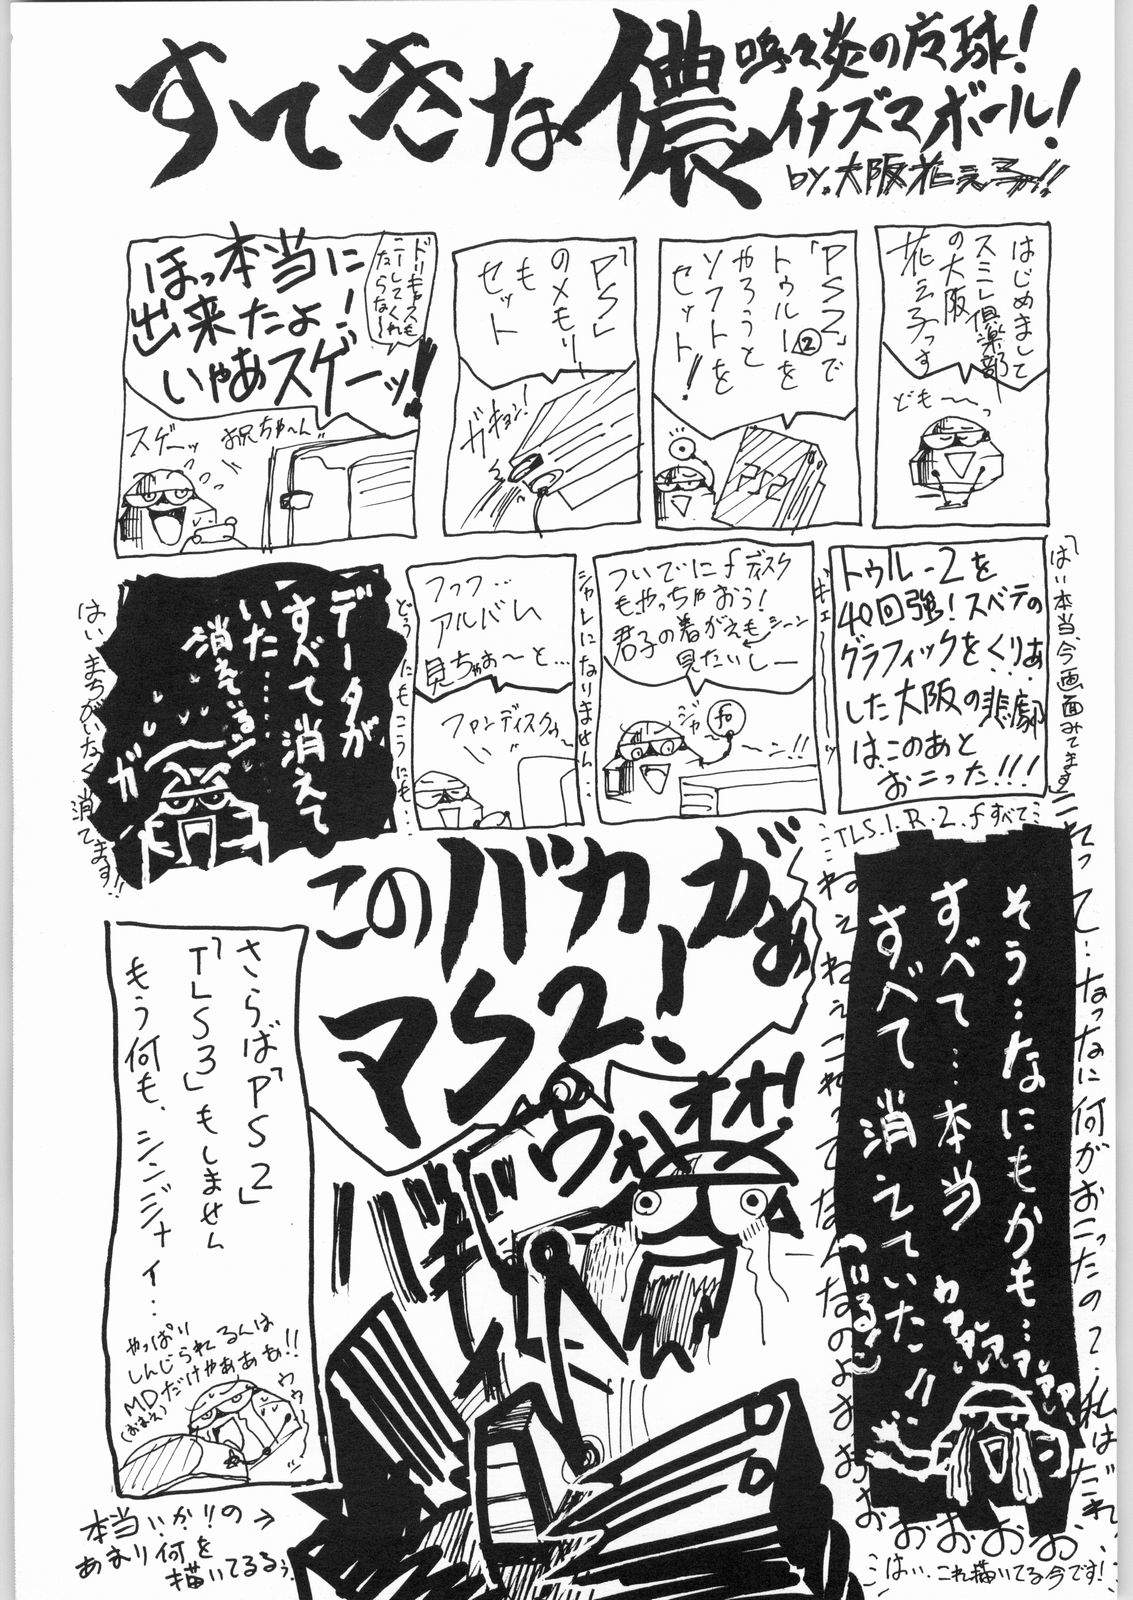 すてきな儂
嗚々炎の広球!
イナズマボール!
by.大阪花えろ子!!
はじめまして
スミレ倶楽部
の大阪
花えろ子っす
ども〜〜っ
「PS2」で
トゥルー②を
やろうと
ソフトを
セット!
PS2
「PS」
のメモリー
も
セット
ガキョン!
ドリキャスも
こーしてくれ
たらな〜
ほっ本当に
出来たよ!
いやあスゲーッ!!
スゲーッ
お兄ちゃ〜ん
「はい本当、今画面みてます」
トゥルー2を
40回強!スベテの
グラフィックをくりあ
した大阪の悲劇
は、このあと
おこった!!!
ギェ〜〜ッ
ついでにfディスク
もやっちゃおう!
君子の着がえもシーン
見たいしー
ジャ〜〜ン!!
シャレになりません…
フッフ…
アルバム
見ちゃお〜と…
ファンディスクの
どうにもこうにも…
データが
すべて消えて
いた……
消えている!
ガ
はい、まちがいなく消てます!!
TLS.1.R.2.fすべて
これって…なっなに何がおこったの?私はだれ
そう…なにもかも…
すべて…本当
すべて消えていた!!
わあぁ
ねえねえこれってなんなのよさおぉおおおおお
このバカ!がぁ
マS2!
ヴォォオオ!
バギ
さらば「PS2」
「TLS3」もしません
もう何も、シンジナイ…
やっぱり
しんじられるんは
MDだけやああぁ!!
ウゥ
本当いか!!の→
あまり何を
描いてるるぅ
はい、これ描いてる今です!